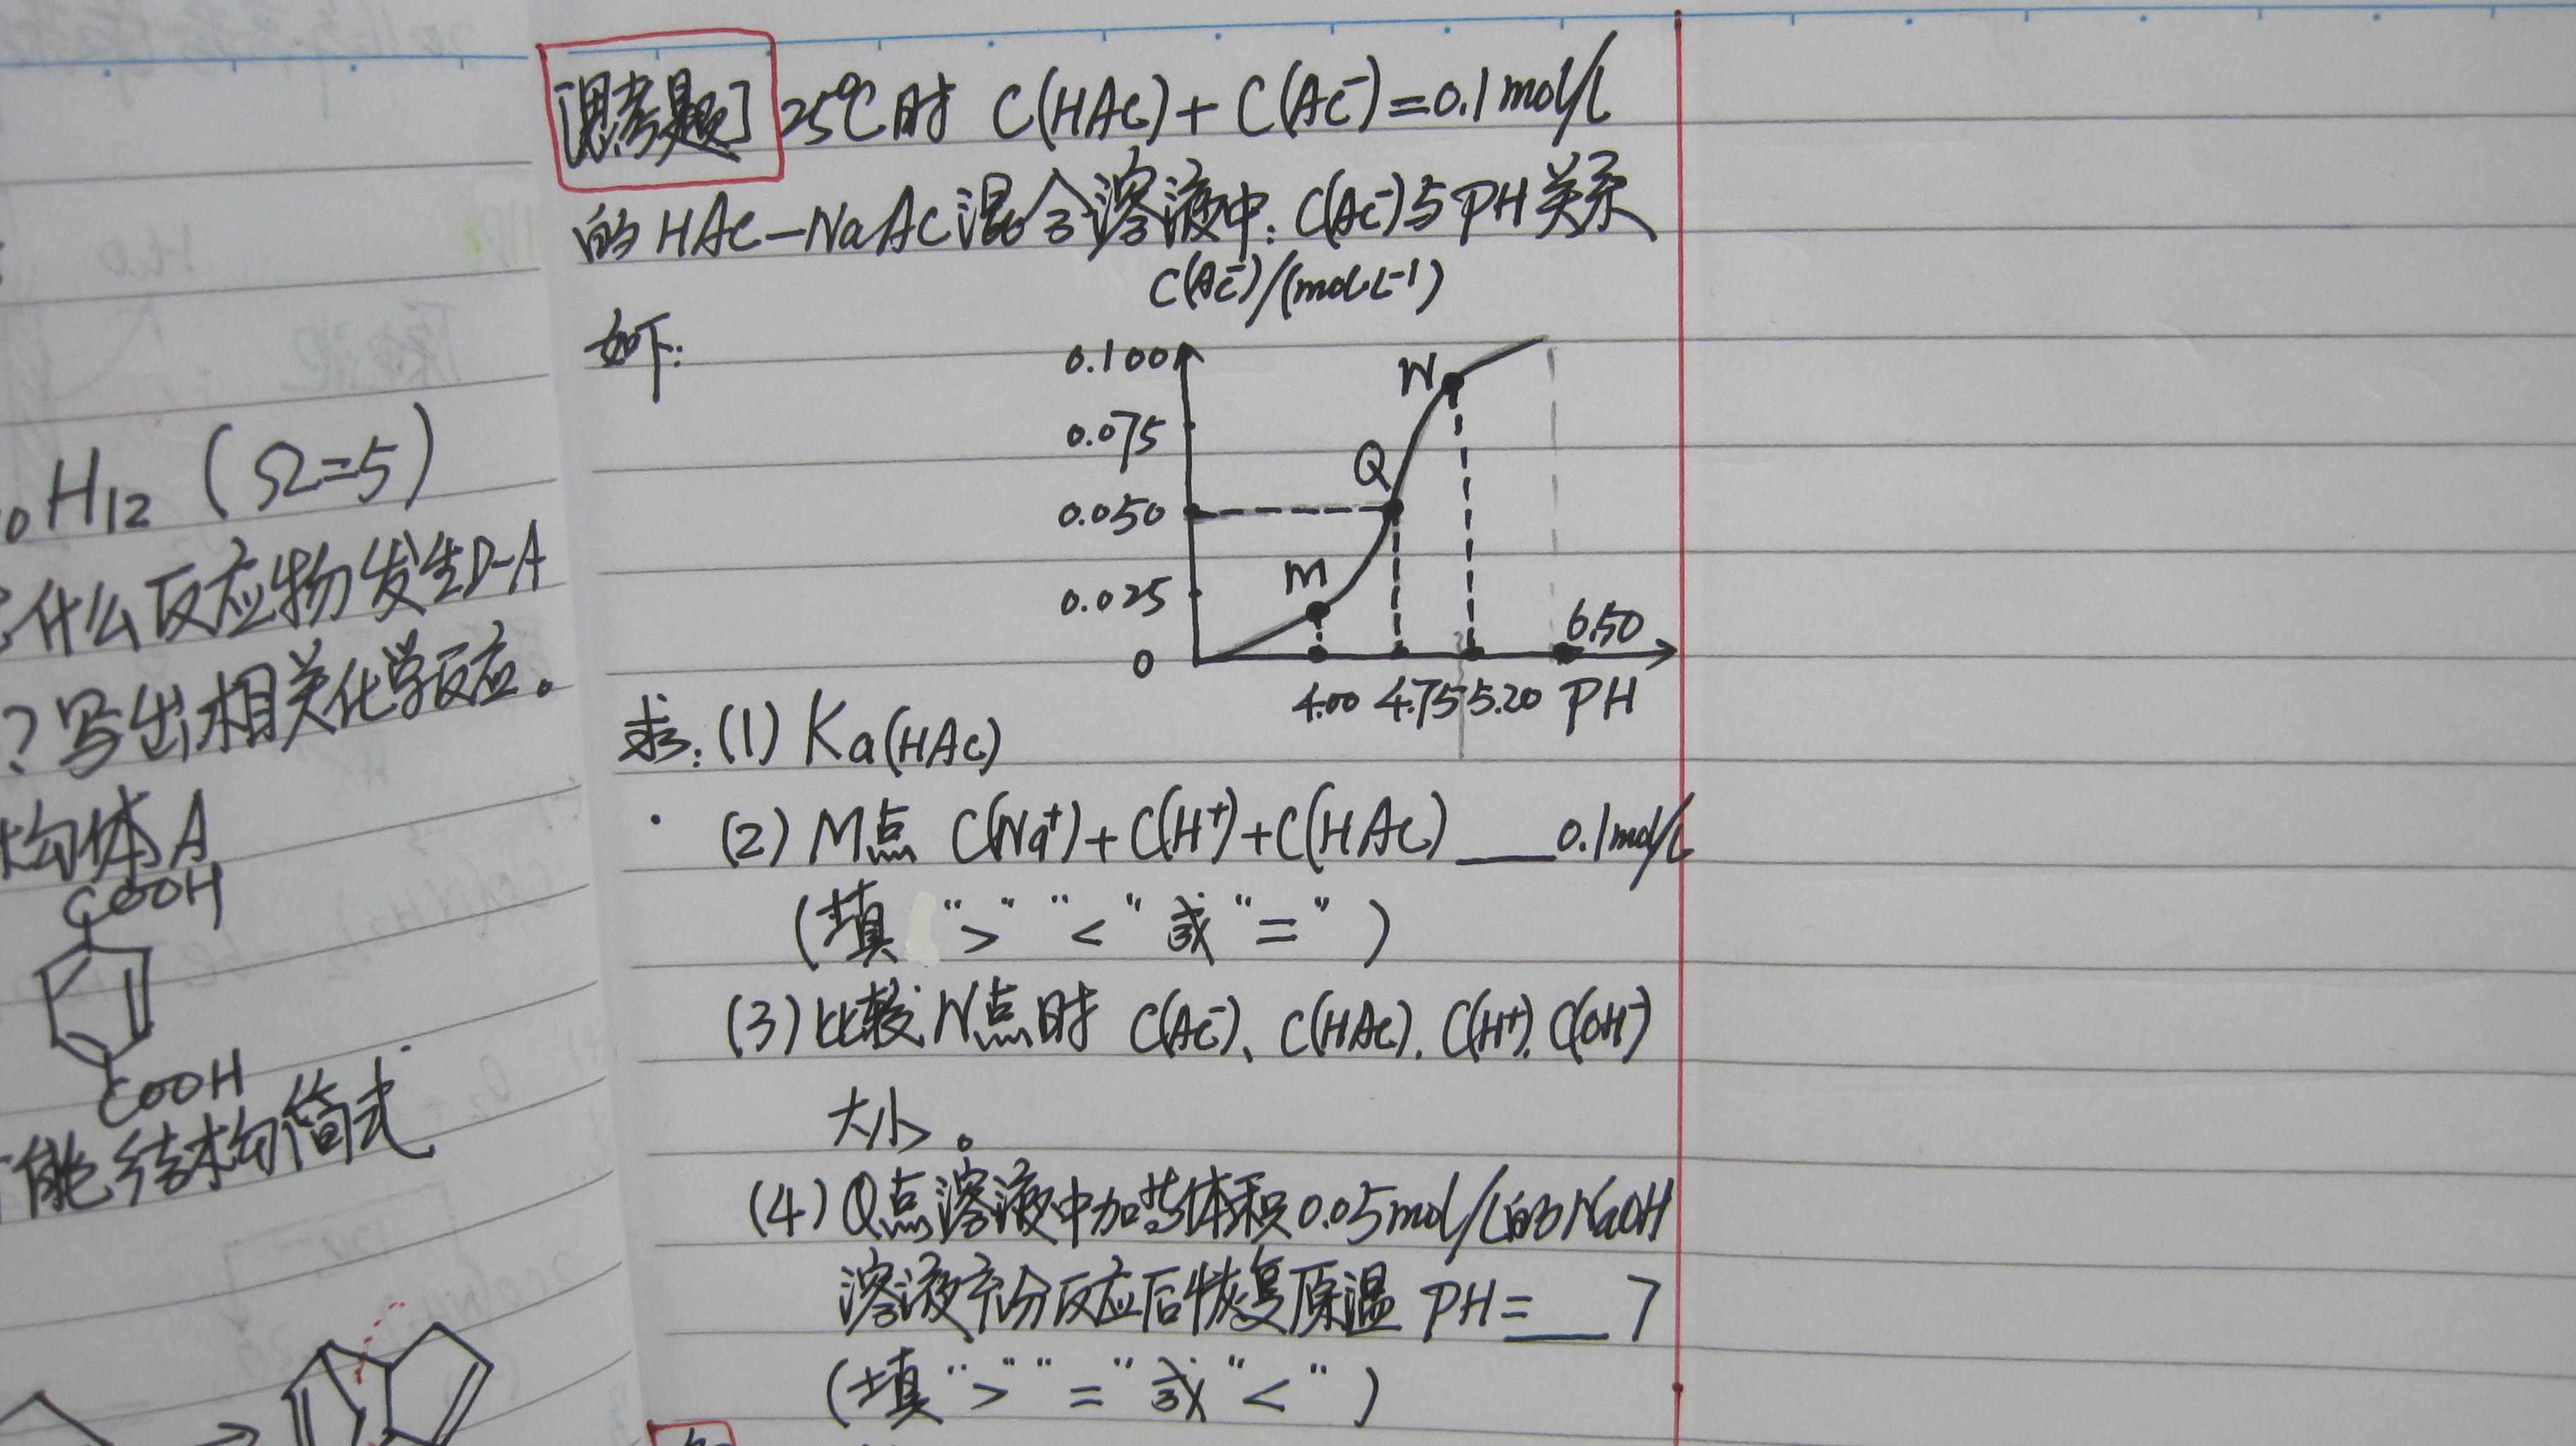 ₀H₁₂ (Ω=5)
什么反应物发生D-A
?写出相关化学反应。
构体A
COOH
COOH
能结构简式
[思考题] 25℃时 C(HAc)+C(Ac⁻)=0.1mol/L
的HAc-NaAc混合溶液中: C(Ac⁻)与PH关系
如下:
C(Ac⁻)/(mol·L⁻¹)
0.100
0.075
0.050
0.025
0
W
Q
M
6.50
4.00 4.75 5.20 PH
求: (1) Ka(HAc)
(2) M点 C(Na⁺)+C(H⁺)+C(HAc) ___ 0.1mol/L
(填 ">" "<" 或 "=" )
(3) 比较W点时 C(Ac⁻)、C(HAc). C(H⁺). C(OH⁻)
大小。
(4) Q点溶液中加等体积0.05mol/L的NaOH
溶液充分反应后恢复原温 PH=___ 7
(填 ">" "=" 或 "<" )